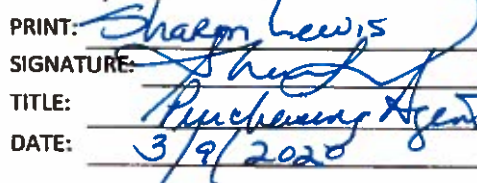 PRINT: Sharon Lewis
SIGNATURE:
TITLE: Purchasing Agent
DATE: 3/9/2020